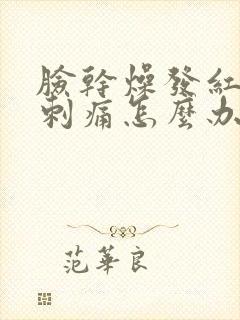 臉幹燥發紅
刺痛怎麼办
范華良